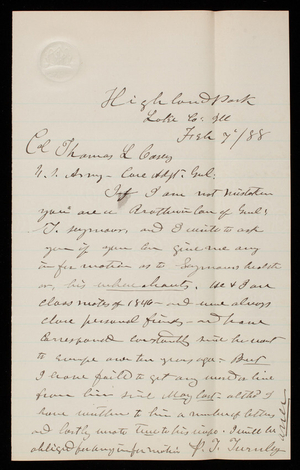 Highland Park
Lake Co: Ill
Feb 7"/88
Col Thomas L Casey
U. S. Army - Care Adjt. Genl:
If I am not mistaken
you are a Brother in law of Genl:
T. Seymour, and I write to ask
you if you can give me any
information as to Seymours health
or, his whereabouts. He & I are
class mates of 1846 - and were always
close personal friends - and have
corresponded constantly since he went
to Europe over ten years ago = But
I have failed to get any word or line
from him since May last: altho I
have written to him a number of letters
and lastly wrote him to his
obliged for any information P. T. Turnley